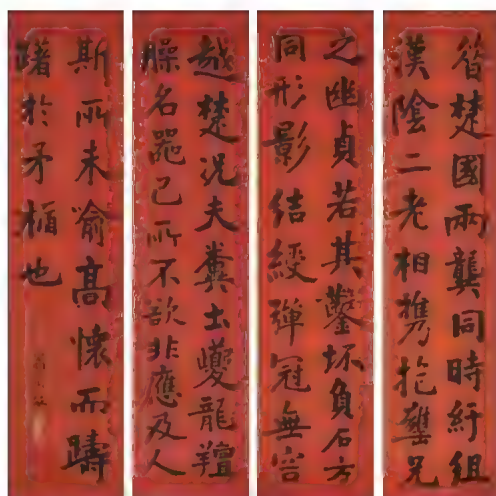 昔楚國兩龔同時紆組
漢陰二老相攜抱甕兄
之幽貞若其鑿坏負石方
同形影結綬彈冠無
越楚況夫糞土夔龍羶
臊名器己所不欲非應及人
斯所未喻高懷而躊
躇於矛楯也